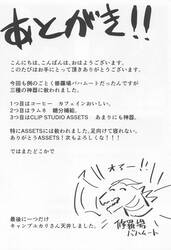 あとがき!!
こんにちは、こんばんは、おはようございます。
このたびはお手にとって頂きありがとうございます。
今回も例のごとく修羅場バハムートだったんですが
三種の神器に救われました。
1つ目はコーヒー カフェインおいしい。
2つ目はラムネ 糖分補給。
3つ目はCLIP STUDIO ASSETS あまりにも神器。
特にASSETSには救われました。足向けて寝れない。
ありがとうASSETS!次もよろしくな!!!!
ではまたどこかで
オァー!!
修羅場
バハムート
最後に一つだけ
キャンプルカリさん天井しました。